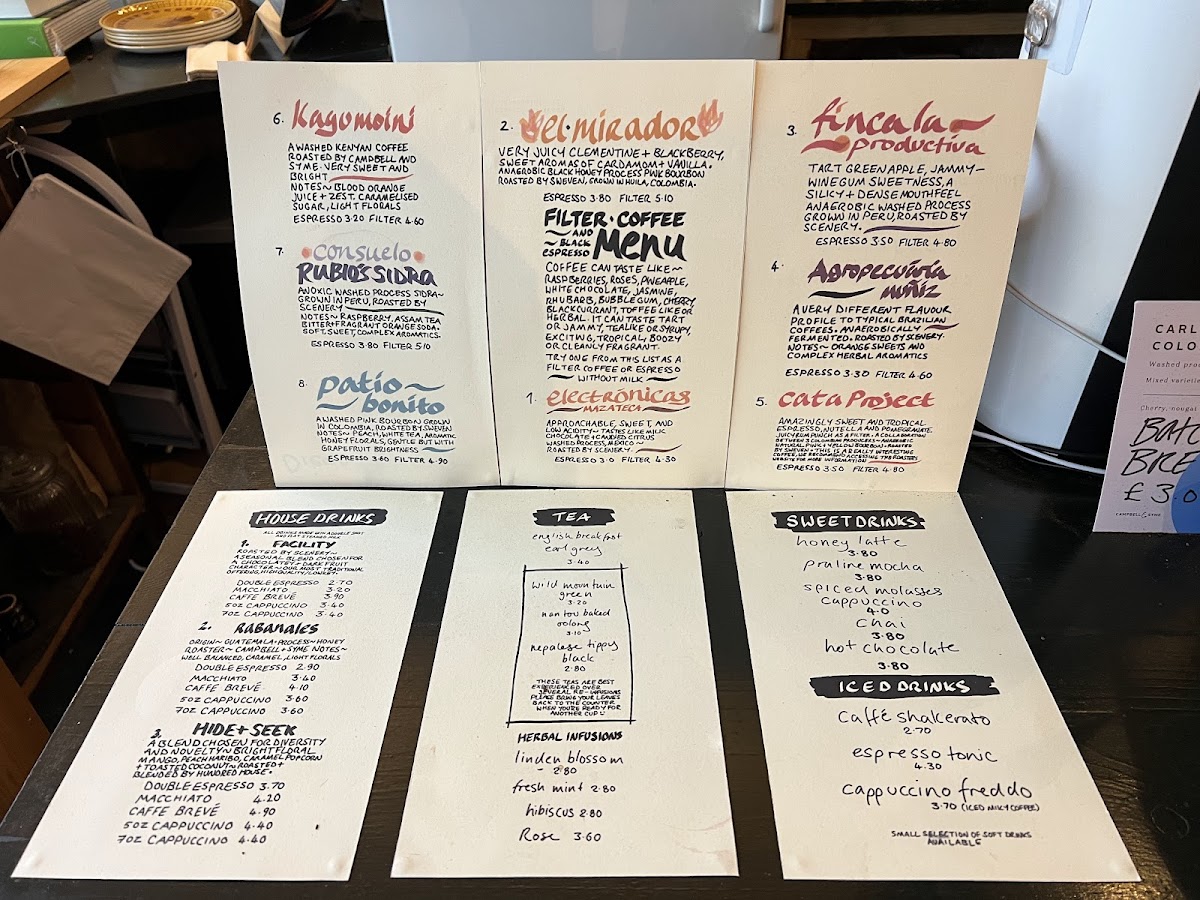 6. Kagumoini
A WASHED KENYAN COFFEE
ROASTED BY CAMPBELL AND
SYME. VERY SWEET AND
BRIGHT
NOTES~ BLOOD ORANGE
JUICE + ZEST, CARAMELISED
SUGAR, LIGHT FLORALS
ESPRESSO 3.20 FILTER 4.60
7. CONSUELO
RUBIO'S SIDRA
ANOXIC WASHED PROCESS SIDRA~
GROWN IN PERU, ROASTED BY
SCENERY
NOTES~ RASPBERRY, ASSAM TEA
BITTER + FRAGRANT ORANGE SODA.
SOFT, SWEET, COMPLEX AROMATICS.
ESPRESSO 3.80 FILTER 5.10
8. patio
bonito
A WASHED PINK BOURBON GROWN
IN COLOMBIA, ROASTED BY SWEVEN
NOTES~ PEACH, WHITE TEA, AROMATIC
HONEY FLORALS, GENTLE BUT WITH
GRAPEFRUIT BRIGHTNESS
ESPRESSO 3.60 FILTER 4.90
2. el·mirador
VERY JUICY CLEMENTINE + BLACKBERRY,
SWEET AROMAS OF CARDAMOM + VANILLA.
ANAEROBIC BLACK HONEY PROCESS PINK BOURBON
ROASTED BY SWEVEN, GROWN IN HUILA, COLOMBIA.
ESPRESSO 3.80 FILTER 5.10
FILTER·COFFEE
~AND~
BLACK
ESPRESSO MENU
COFFEE CAN TASTE LIKE~
RASPBERRIES, ROSES, PINEAPPLE,
WHITE CHOCOLATE, JASMINE,
RHUBARB, BUBBLEGUM, CHERRY,
BLACKCURRANT, TOFFEE LIKE OR
HERBAL. IT CAN TASTE TART
OR JAMMY, TEALIKE OR SYRUPY,
EXCITING, TROPICAL, BOOZY
OR CLEANLY FRAGRANT.
TRY ONE FROM THIS LIST AS A
FILTER COFFEE OR ESPRESSO
~WITHOUT MILK~
1. electrónicas
MAZATECA
APPROACHABLE, SWEET AND
LOW ACIDITY~ TASTES LIKE MILK
CHOCOLATE + CANDIED CITRUS
WASHED PROCESS, MEXICO~
ROASTED BY SCENERY.
ESPRESSO 3.0 FILTER 4.30
3. fincala
productiva
TART GREEN APPLE, JAMMY~
WINEGUM SWEETNESS, A
SILKY + DENSE MOUTHFEEL
ANAEROBIC WASHED PROCESS
GROWN IN PERU, ROASTED BY
SCENERY.
ESPRESSO 3.50 FILTER 4.80
4. Agropecuária
nuñiz
A VERY DIFFERENT FLAVOUR
PROFILE TO TYPICAL BRAZILIAN
COFFEES. ANAEROBICALLY
FERMENTED. ROASTED BY SCENERY.
NOTES~ ORANGE SWEETS AND
COMPLEX HERBAL AROMATICS
ESPRESSO 3.30 FILTER 4.60
5. Cata Project
AMAZINGLY SWEET AND TROPICAL
ESPRESSO, NUTELLA AND POMEGRANATE.
JUICY GUM PUNCH AS A FILTER~ A COLLABORATION
OF THESE 3 COLOMBIAN PRODUCERS~ ANAEROBIC
NATURAL PINK + YELLOW BOURBON~ ROASTED
BY SWEVEN~ THIS IS A REALLY INTERESTING
COFFEE, WE RECOMMEND ACCESSING THE ROASTERS
WEBSITE FOR MORE INFORMATION
ESPRESSO 3.50 FILTER 4.80
HOUSE DRINKS
ALL DRINKS MADE WITH A DOUBLE SHOT
AND FLAT STEAMED MILK
1. FACILITY
ROASTED BY SCENERY~
A SEASONAL BLEND CHOSEN FOR
A CHOCOLATEY + DARK FRUIT
CHARACTER~ OUR MOST TRADITIONAL
OFFERING, HIGH QUALITY/LOWKEY.
DOUBLE ESPRESSO 2.70
MACCHIATO 3.20
CAFFE BREVÉ 3.90
5OZ CAPPUCCINO 3.40
7OZ CAPPUCCINO 3.40
2. RABANALES
ORIGIN~ GUATEMALA~ PROCESS~ HONEY
ROASTER~ CAMPBELL + SYME NOTES~
WELL BALANCED, CARAMEL, LIGHT FLORALS
DOUBLE ESPRESSO 2.90
MACCHIATO 3.40
CAFFÈ BREVÉ 4.10
5OZ CAPPUCCINO 3.60
7OZ CAPPUCCINO 3.60
3. HIDE + SEEK
A BLEND CHOSEN FOR DIVERSITY
AND NOVELTY~ BRIGHT FLORAL
MANGO, PEACH HARIBO, CARAMEL POPCORN
+ TOASTED COCONUT~ ROASTED +
BLENDED BY HUNDRED HOUSE.
DOUBLE ESPRESSO 3.70
MACCHIATO 4.20
CAFFE BREVÉ 4.90
5OZ CAPPUCCINO 4.40
7OZ CAPPUCCINO 4.40
TEA
english breakfast
earl grey
3.40
wild mountain
green
3.20
nantou baked
oolong
3.10~
nepalese tippy
black
2.80
THESE TEAS ARE BEST
EXPERIENCED OVER
SEVERAL RE-INFUSIONS
PLEASE BRING YOUR LEAVES
BACK TO THE COUNTER
WHEN YOU'RE READY FOR
ANOTHER CUP
HERBAL INFUSIONS
linden blossom
2.80
fresh mint 2.80
hibiscus 2.80
Rose 3.60
SWEET DRINKS
honey latte
3.80
praline mocha
3.80
spiced molasses
cappuccino
4.0
chai
3.80
hot chocolate
3.80
ICED DRINKS
Caffé shakerato
2.70
espresso tonic
4.30
cappuccino freddo
3.70 (ICED MILKY COFFEE)
SMALL SELECTION OF SOFT DRINKS
AVAILABLE
CARL
COLO
Washed pro
Mixed varieti
Cherry, nougat
BATC
BRE
£3.0
CAMPBELL & SYME